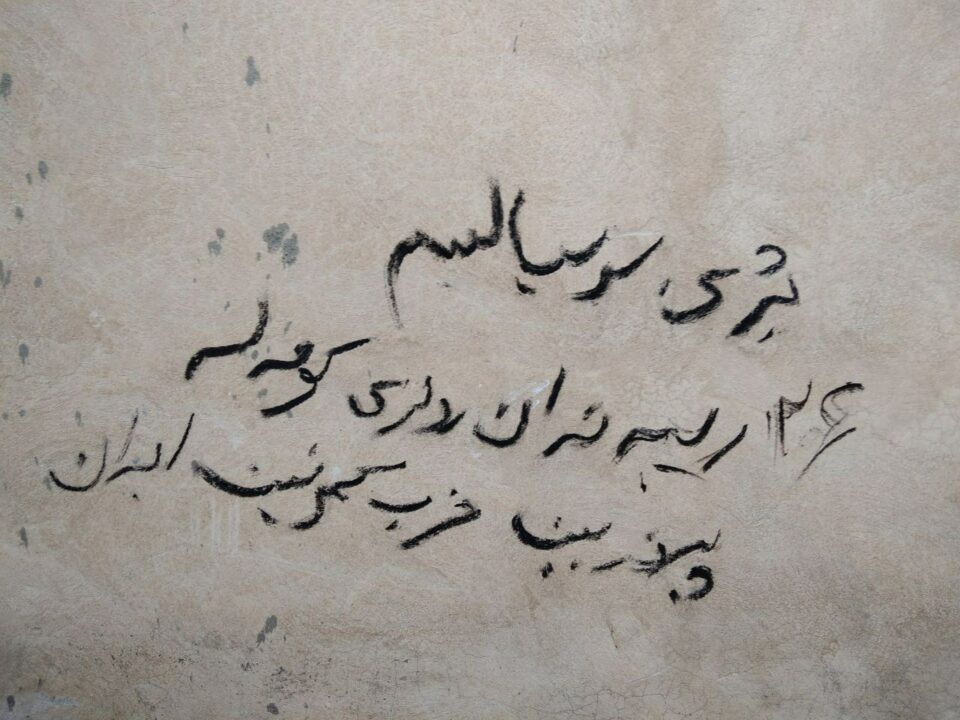 بژی سوسیالیسم
۲۶ ریبه ندان روژی کومه له
پیروز بیت حزب کمونیست ایران